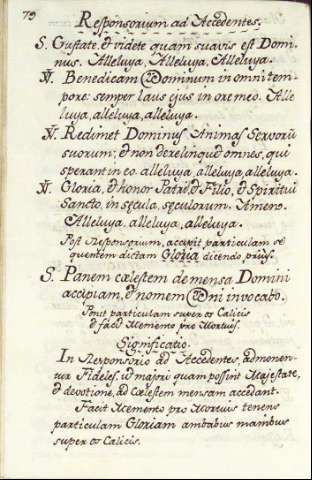 79
Responsorium ad Accedentes.
S. Gustate, & videte quam suavis est Domi-
nus. Alleluya, Alleluya, Alleluya.
V. Benedicam Dominum in omni tem-
pore: semper laus ejus in ore meo. Alle
luya, alleluya, alleluya.
V. Redimet Dominus Animas Servorũ
suorum; & non derelinquet omnes, qui
sperant in eo. alleluya, alleluya, alleluya.
V. Gloria, & honor Patri, & Filio, & Spiritui
Sancto, in secula, seculorum. Amen.
Alleluya, alleluya, alleluya.
Post Responsorium, accipit particulam se
quentem dictam Gloria dicendo prius.
S. Panem cælestem de mensa Domini
accipiam, & nomen Dni invocabo.
Ponit particulam super os Calicis
& facit Memento pro Mortuis.
Significatio.
In Responsorio ad Accedentes, admonen-
tur Fideles, ut majori quam possint Majestate,
& devotione, ad cælestem mensam accedant.
Facit Memento pro Mortuis tenens
particulam Gloriam ambabus manibus
super os Calicis.